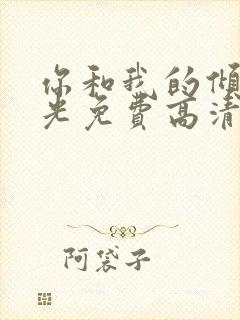 你和我的倾
光免費高清
阿袋子